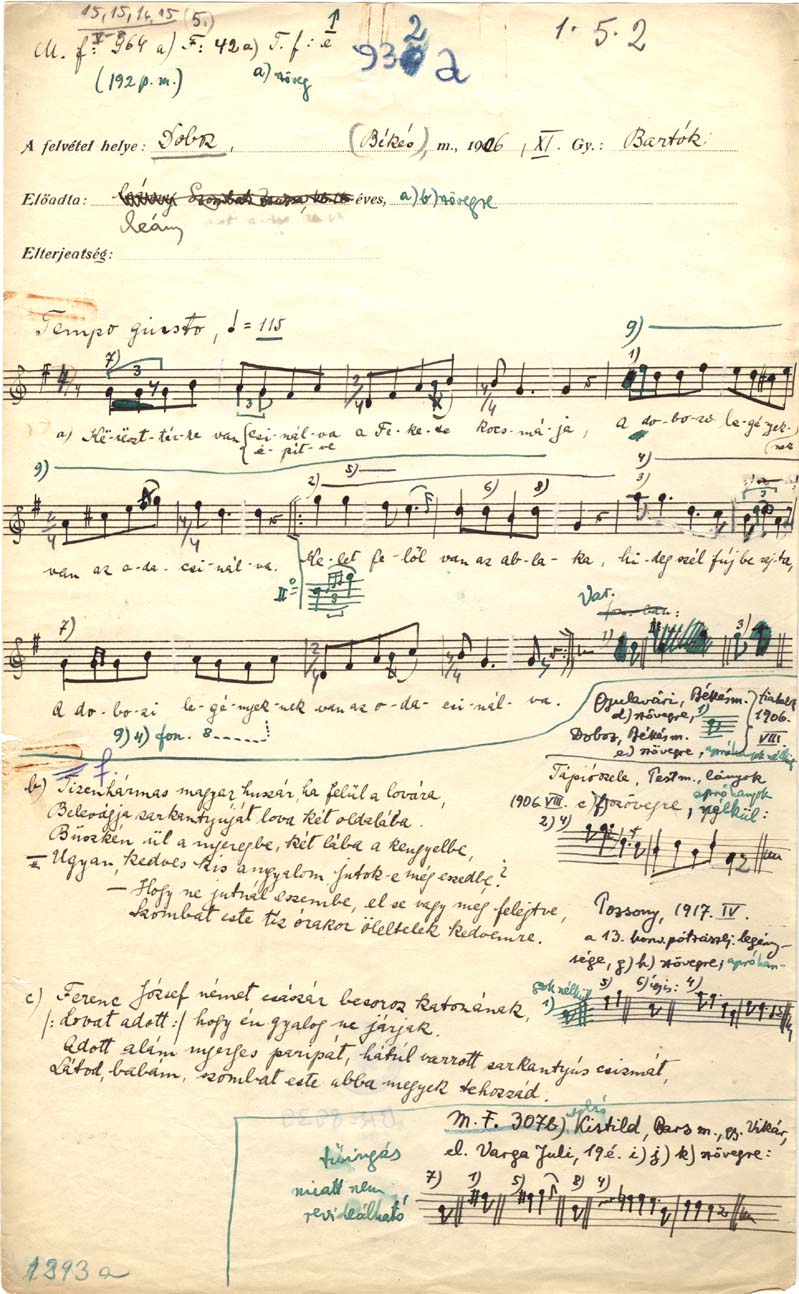 15, 15, 14, 15 (5.)
M. f: 964 a) F: 42 a) T. f: e
(192 p. m.) a) szöveg
932 a
1. 5. 2
A felvétel helye: Doboz, (Békés), m., 1906, XI. Gy.: Bartók
Előadta: éves, a) b) szövegre
leány
Elterjeatség:
Tempo giusto, ♩ = 115
7) 3 9) 1)
a) Ke-reszt-tér-re van csi-nál-va a Fe-ke-te kocs-má-ja, a do-bo-zi le-gé-nyek-
é-pit-ve nek
9) 2) 5) 6) 8) 4) 3)
van az o-da- csi-nál-va. Ke-let fe-lől van az ab-la-ka, hi-deg szél fúj be raj-ta,
II°
Var.
7) 1) 3)
A do-bo-zi le-gé-nyek-nek van az o-da-csi-nál-va.
9) 4) fon. 8
Gyulavári, Békésm.
d) szövegre, 1)
Doboz, Békés m.
e) szövegre, apróhangok nélkül
fiatalok
1906.
VIII
b) Tizenhármas magyar huszár, ha felül a lovára,
Belevágja sarkantyuját lova két oldalába.
Büszkén ül a nyeregbe, két lába a kengyelbe,
– Ugyan, kedves kis angyalom jutok-e még eszedbe?
– Hogy ne jutnál eszembe, el se vagy még felejtve,
Szombat este tíz órakor öleltelek kedvemre.
Tápiószele, Pest m., lányok
1906. VIII. szövegre, apróhangok nélkül:
2) 4)
Pozsony, 1917. IV.
a 13. honv. pótzászlj. legény-
sége, g) h) szövegre; apróhan-
gok nélkül
1) 3) 6) 4)
c) Ferenc József német császár besoroz katonának,
/: Lovat adott :/ hogy én gyalog ne járjak.
Adott alám nyerges paripát, hátúl varrott sarkantyús csizmát,
Látod, babám, szombat este abba megyek tehozzád.
M. F. 307b) Kistild, Bars m., gy. Vikár,
el. Varga Juli, 19 é. i) j) k) szövegre:
7) 1) 5) 8) 4)
tűingás
miatt nem
revideálható
1393 a